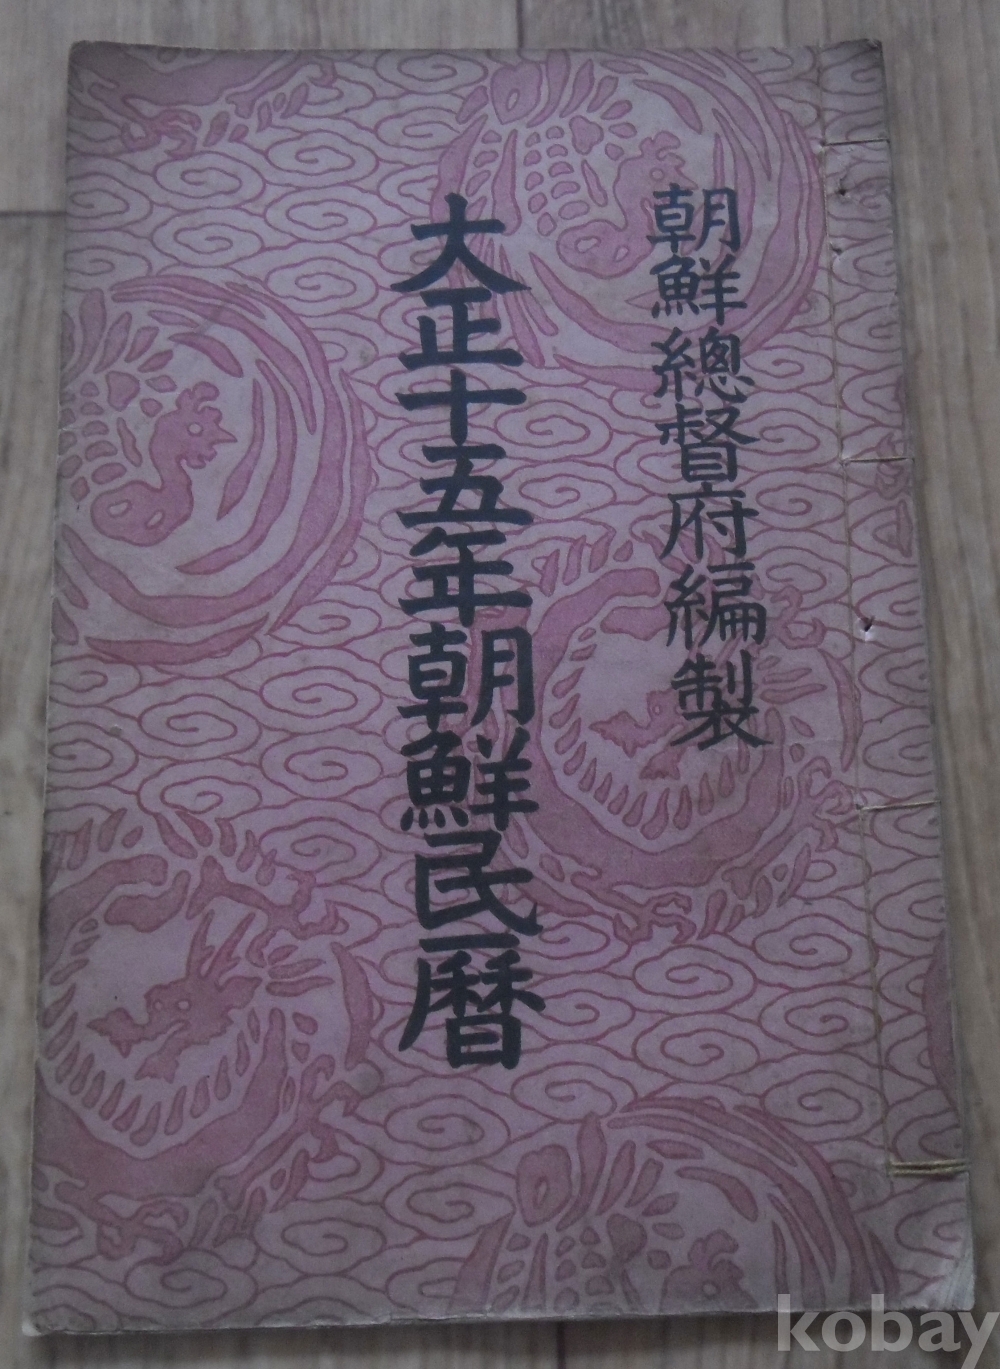 朝鮮總督府編製
大正十五年朝鮮民暦
kobay